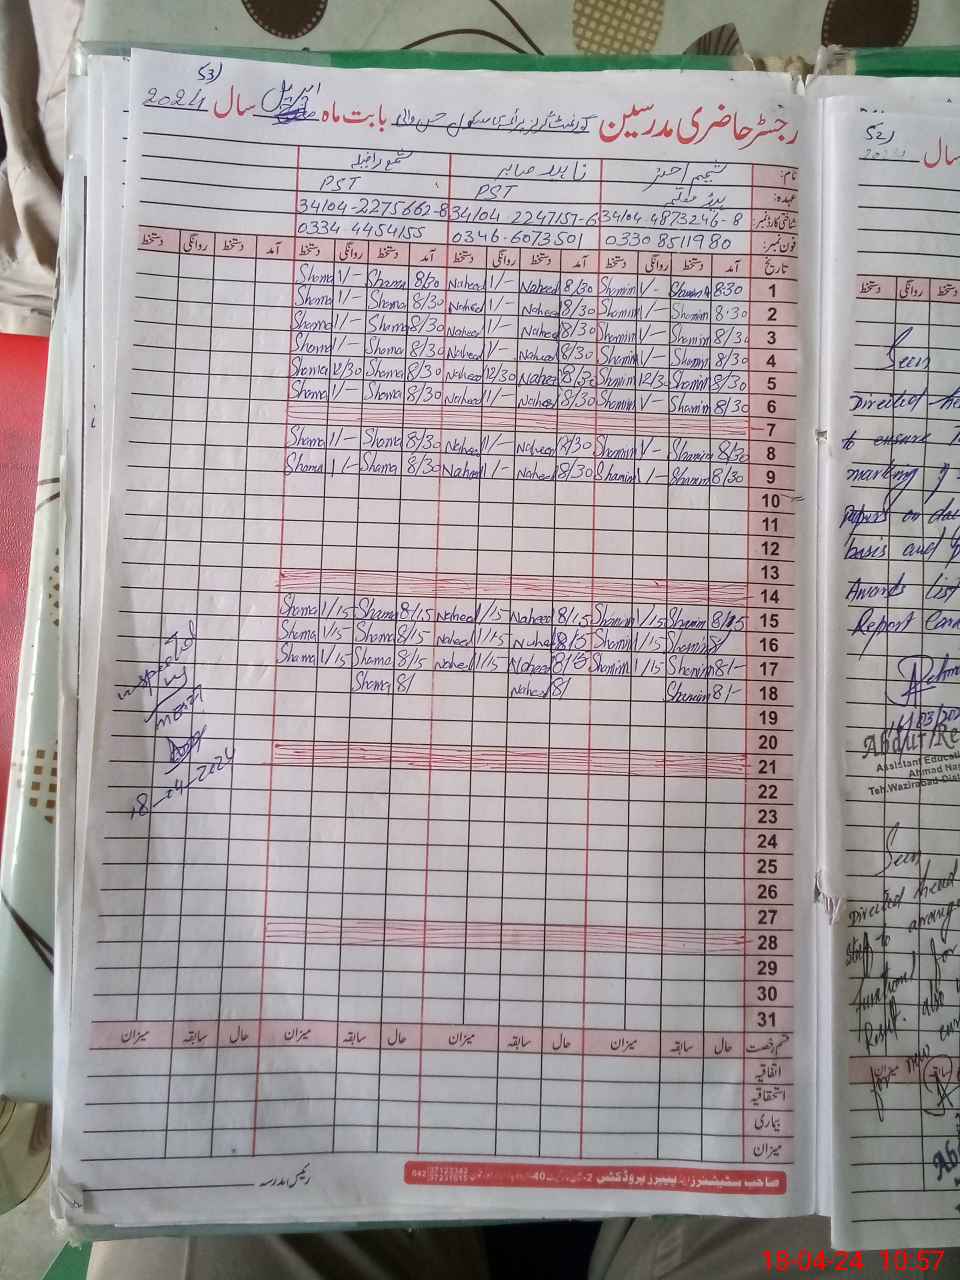 53)
رجسٹر حاضری مدرسین گورنمنٹ گرلز پرائمری سکول بابت ماہ اپریل سال 2024
نام: شمیم اختر ناہید صابر شمع راحیلہ
عہدہ: PST PST
شناختی کارڈ نمبر: 34104-4873246-8 34104 2247157-6 34104-2275662-8
فون نمبر: 0330 8511980 0346-6073501 0334-4454155
تاریخ آمد دستخط روانگی دستخط آمد دستخط روانگی دستخط آمد دستخط روانگی دستخط آمد دستخط روانگی دستخط
1 8:30 Shamim 1/- Shamim 8/30 Naheed 1/- Naheed 8/30 Shama 1/- Shama
2 8:30 Shamim 1/- Shamim 8/30 Naheed 1/- Naheed 8/30 Shama 1/- Shama
3 8/30 Shamim 1/- Shamim 8/30 Naheed 1/- Naheed 8/30 Shama 1/- Shama
4 8/30 Shamim 1/- Shamim 8/30 Naheed 1/- Naheed 8/30 Shama 1/- Shama
5 8/30 Shamim 12/30 Shamim 8/30 Naheed 12/30 Naheed 8/30 Shama 12/30 Shama
6 8/30 Shamim 1/- Shamim 8/30 Naheed 1/- Naheed 8/30 Shama 1/- Shama
7
8 8/30 Shamim 1/- Shamim 8/30 Naheed 1/- Naheed 8/30 Shama 1/- Shama
9 8/30 Shamim 1/- Shamim 8/30 Naheed 1/- Naheed 8/30 Shama 1/- Shama
10
11
12
13
14
15 8/15 Shamim 1/15 Shamim 8/15 Naheed 1/15 Naheed 8/15 Shama 1/15 Shama
16 8/ Shamim 1/15 Shamim 8/15 Naheed 1/15 Naheed 8/15 Shama 1/15 Shama
17 8/- Shamim 1/15 Shamim 8/15 Naheed 1/15 Naheed 8/15 Shama 1/15 Shama
18 8/- Shamim 8/ Naheed 8/ Shama
19
20
21
22
23
24
25
26
27
28
29
30
31
Inspected
by
18-04-2024
قسم رخصت حال سابقہ میزان حال سابقہ میزان حال سابقہ میزان حال سابقہ میزان
اتفاقیہ
استحقاقیہ
بیماری
میزان
رئیس مدرسہ
صاحب سٹیشنرز پیپرز پروڈکشن
52)
سال
دستخط روانگی دستخط
Seen
Directed
to ensure
marking
Papers on
basis and
Awards List
Report
Abdul Re
Assistant Educatio
Ahmad Na
Teh.Wazirabad Dist
Seen
Directed head
Staff to arrange
functional for
Result. also
for new
میزان سابقہ
18-04-24 10:57